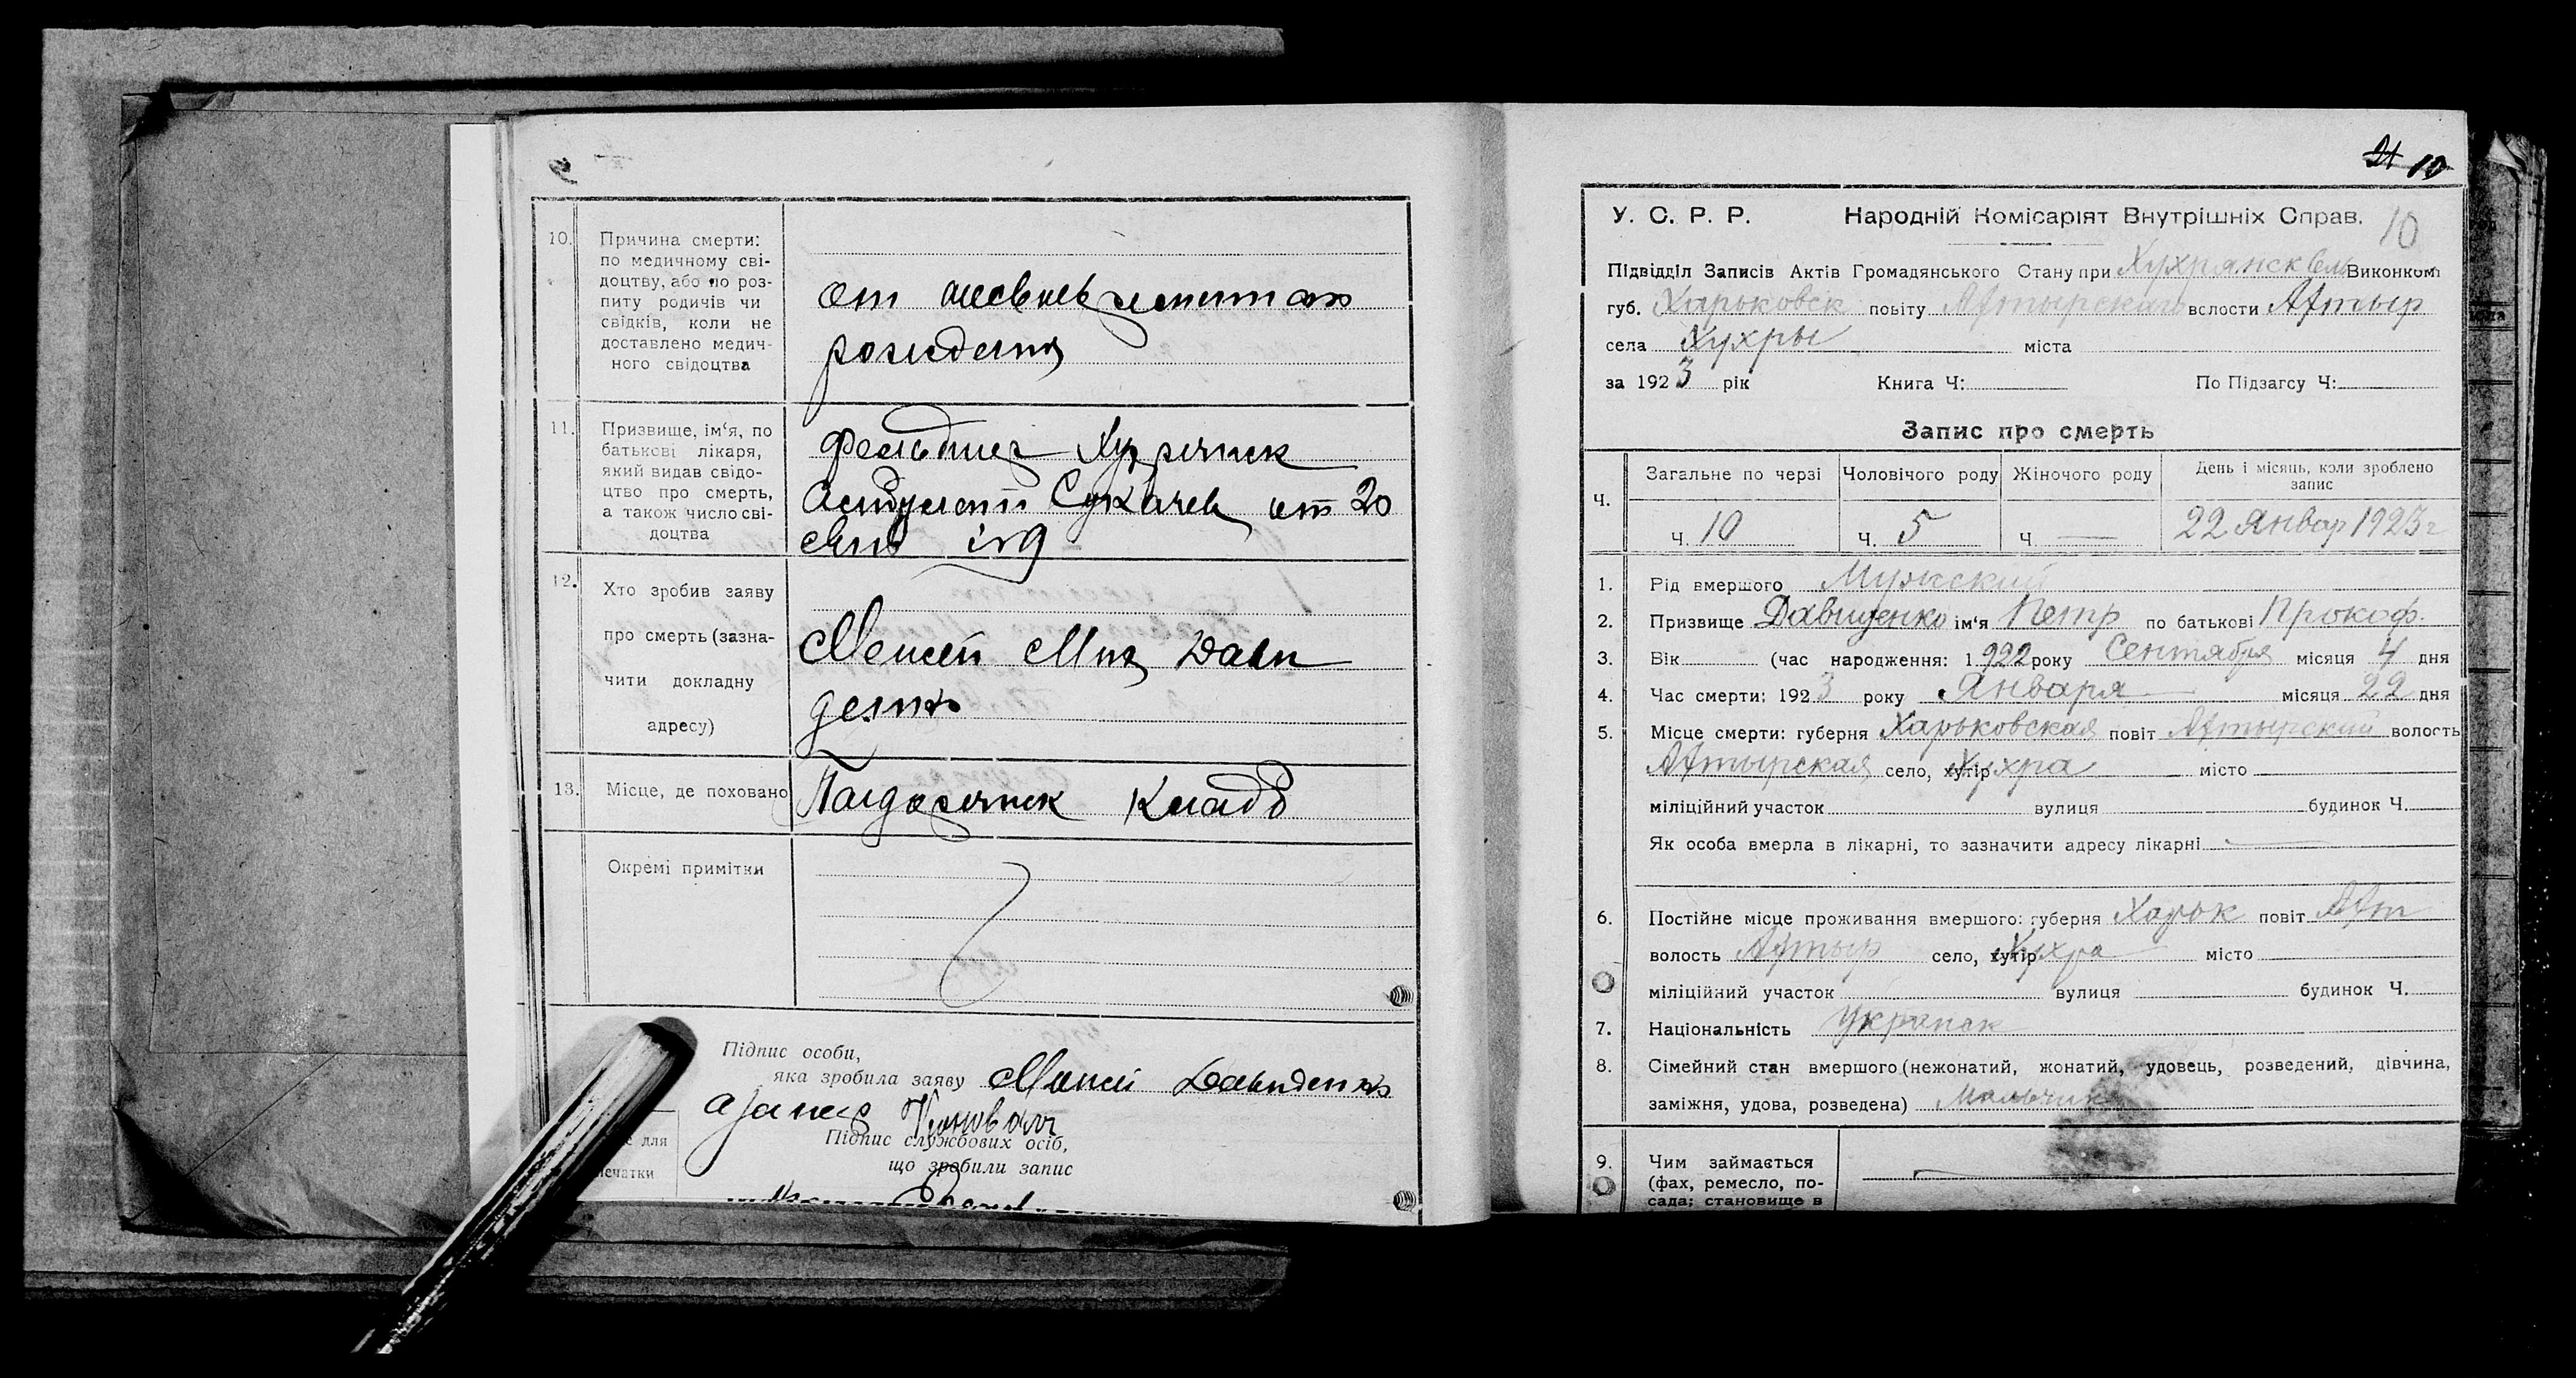 10.
Причина смерти:
по медичному сві-
доцтву, або по роз-
питу родичів чи
свідків, коли не
доставлено медич-
ного свідоцтва
от
11.
Призвище, ім‘я, по
батькові лікаря,
який видав свідо-
цтво про смерть,
а також число сві-
доцтва
Сукачев от 20
12.
Хто зробив заяву
про смерть (зазна-
чити докладну
адресу)
13.
Місце, де поховано
Кладб
Окремі примітки
Підпис особи,
яка зробила заяву Давиденко
Коновал
Підпис службових осіб,
для
що зробили запис
печатки
21 10
У. С. Р. Р. Народній Комісаріят Внутрішніх Справ.
10
Підвідділ Записів Актів Громадянського Стану при Хухрянск Виконком
губ. Харьковск повіту Ахтырскаго волости Ахтыр
села Хухры міста
за 1923 рік Книга Ч: По Підзагсу Ч:
Запис про смерть
Ч. Загальне по черзі Чоловічого роду Жіночого роду День і місяць, коли зроблено
запис
Ч. 10 Ч. 5 Ч — 22 Январ 1923 г
1. Рід вмершого Мужский
2. Призвище Давиденко ім‘я Петр по батькові Прокоф.
3. Вік (час народження: 1922 року Сентября місяця 4 дня
4. Час смерти: 1923 року Января місяця 22 дня
5. Місце смерти: губерня Харьковская повіт Ахтырский волость
Ахтырская село, хутір Хухра місто
міліційний участок вулиця будинок Ч.
Як особа вмерла в лікарні, то зазначити адресу лікарні
6. Постійне місце проживання вмершого: губерня Харьк повіт Ахт
волость Ахтыр село, хутір Хухра місто
міліційний участок вулиця будинок Ч.
7. Національність
8. Сімейний стан вмершого (нежонатий, жонатий, удовець, розведений, дівчина,
заміжня, удова, розведена) Мальчик
9. Чим займається
(фах, ремесло, по-
сада; становище в